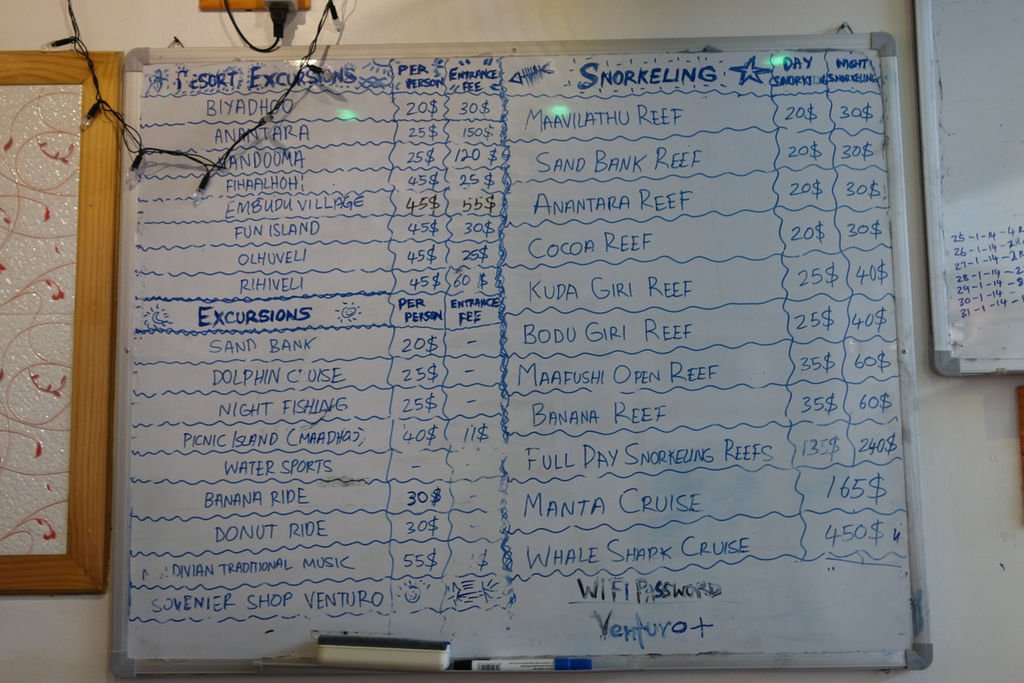 RESORT EXCURSIONS PER PERSON ENTRANCE FEE
BIYADHOO 20$ 30$
ANANTARA 25$ 150$
KANDOOMA 25$ 120$
FIHAALHOHI 45$ 25$
EMBUDU VILLAGE 45$ 55$
FUN ISLAND 45$ 30$
OLHUVELI 45$ 25$
RIHIVELI 45$ 60$
EXCURSIONS PER PERSON ENTRANCE FEE
SAND BANK 20$ -
DOLPHIN C UISE 25$ -
NIGHT FISHING 25$ -
PICNIC ISLAND (MAADHOO) 40$ 11$
WATER SPORTS - -
BANANA RIDE 30$ -
DONUT RIDE 30$ -
DIVIAN TRADITIONAL MUSIC 55$
SOVENIER SHOP VENTURO
SNORKELING DAY SNORKELING NIGHT SNORKELING
MAAVILATHU REEF 20$ 30$
SAND BANK REEF 20$ 30$
ANANTARA REEF 20$ 30$
COCOA REEF 20$ 30$
KUDA GIRI REEF 25$ 40$
BODU GIRI REEF 25$ 40$
MAAFUSHI OPEN REEF 35$ 60$
BANANA REEF 35$ 60$
FULL DAY SNORKELING REEFS 135$ 240$
MANTA CRUISE 165$
WHALE SHARK CRUISE 450$
WIFI PASSWORD
Venturo+
25-1-14-4
26-1-14-2
27-1-14-2
28-1-14-2
29-1-14-8
30-1-14-
31-1-14-